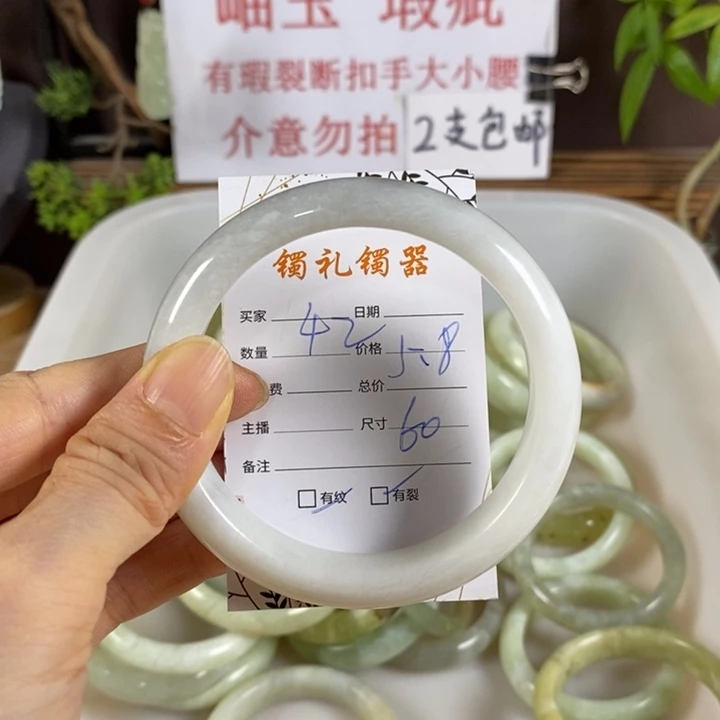 岫玉 瑕疵
有瑕裂断扣手大小腰
介意勿拍 2支包邮
镯礼镯器
买家 日期
42
数量 价格 5.8
费 总价
主播 尺寸 60
备注
有纹 有裂